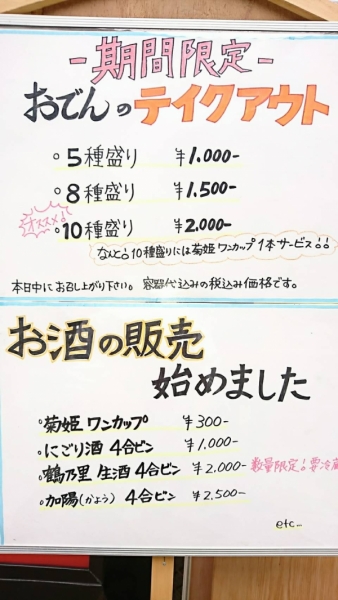 -期間限定-
おでんのテイクアウト
◦5種盛り ¥1.000-
◦8種盛り ¥1.500-
オススメ!
◦10種盛り ¥2.000-
なんと!10種盛りには菊姫ワンカップ1本サービス!!
本日中にお召し上がり下さい。容器代込みの税込み価格です。
お酒の販売
始めました
◦菊姫 ワンカップ ¥300-
◦にごり酒 4合ビン ¥1.000-
◦鶴乃里 生酒 4合ビン ¥2.000- 数量限定!要冷蔵
◦加陽(かよう) 4合ビン ¥2.500-
etc...